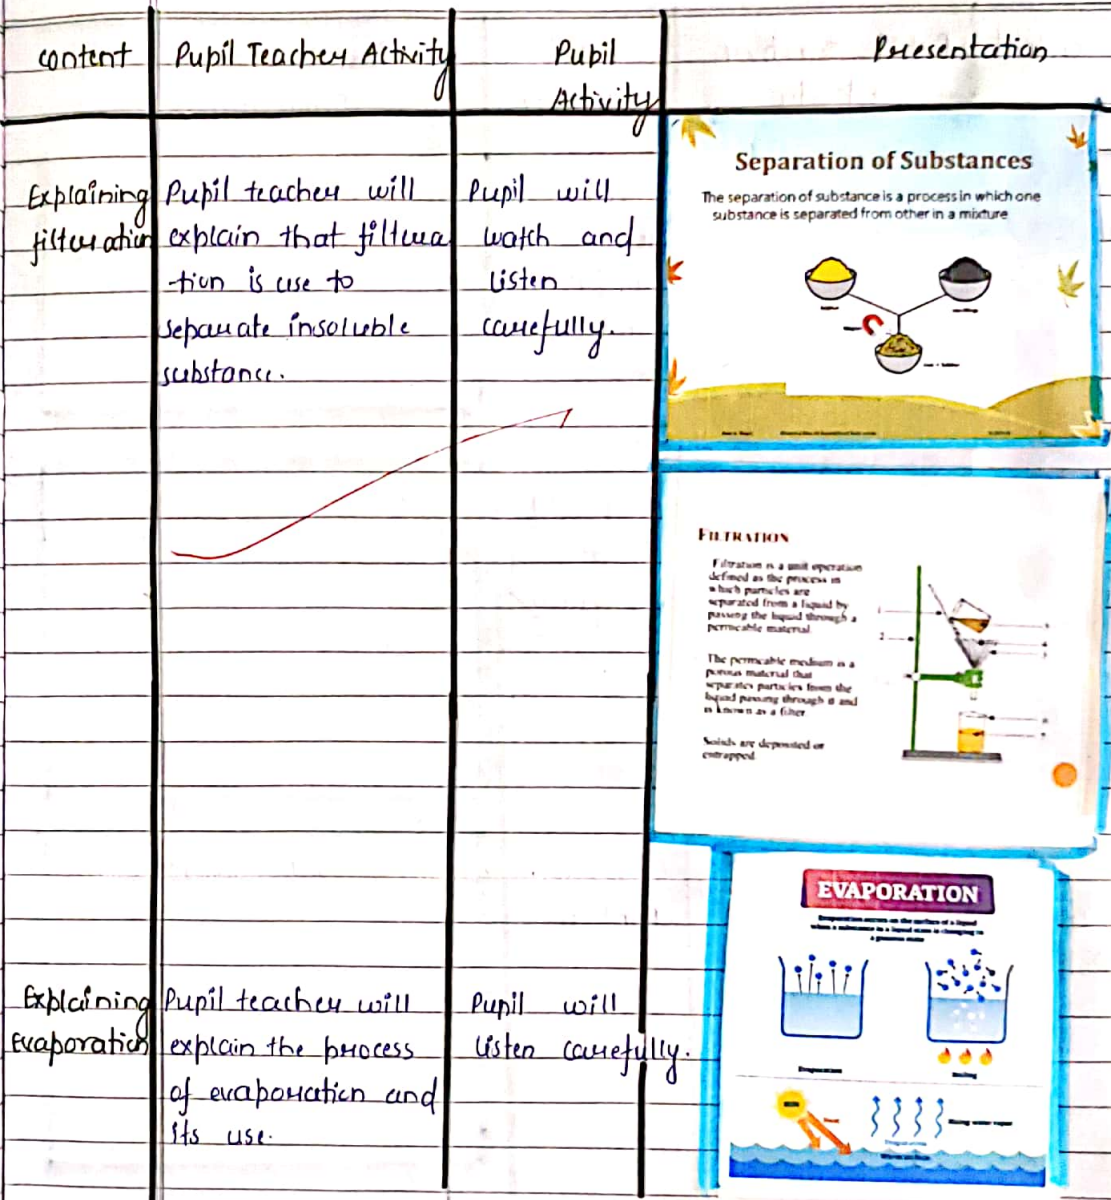 content
Pupil Teacher Activity
Pupil
Activity
Presentation
Explaining
filteration
Pupil teacher will
explain that filtera
tion is use to
separate insoluble
substance.
Pupil will
watch and
listen
carefully.
Separation of Substances
The separation of substance is a process in which one
substance is separated from other in a mixture
FILTRATION
Filtration is a unit operation
defined as the process in
which particles are
separated from a liquid by
passing the liquid through a
permeable material
The permeable medium is a
porous material that
separates particles from the
liquid passing through it and
is known as a filter
Solids are deposited or
entrapped
1
2
EVAPORATION
Evaporation occurs on the surface of a liquid
when a substance in a liquid state is changing to
a gaseous state
Evaporation
Boiling
SUN
Heat
Rising water vapor
Explaining
Evaporation
Pupil teacher will
explain the process
of evaporation and
its use.
Pupil will
listen carefully.